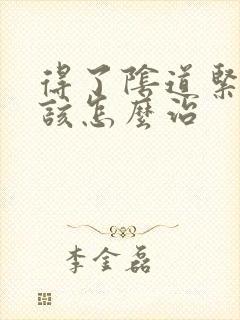 得了陰道緊
該怎麼治
李金磊